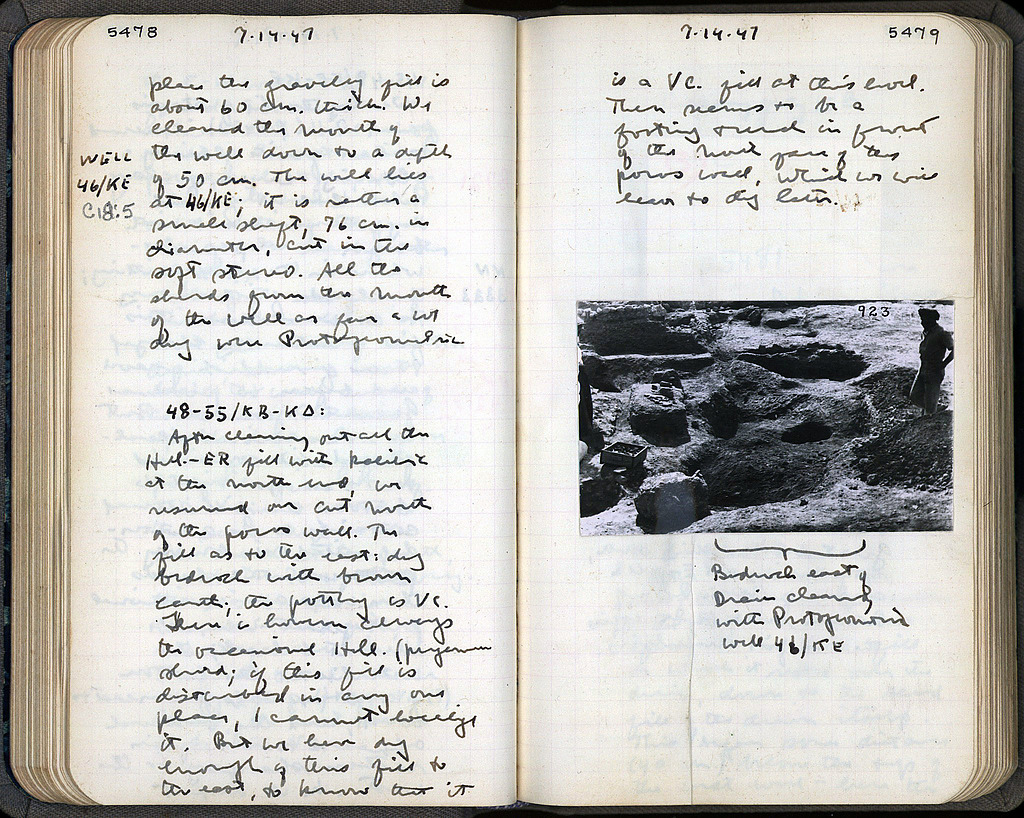 5478
7·14·47
place the gravelly fill is
about 60 cm. thick. We
cleaned the mouth of
the well down to a depth
of 50 cm. The well lies
at 46/KE; it is rather a
small shaft, 76 cm. in
diameter, cut in the
soft stereo. All the
sherds from the mouth
of the well as far as we
dug were Protogeometric
WELL
46/KE
C18:5
48-55/KB-KΔ:
After cleaning out all the
Hell.-ER fill with
at the north end, we
resumed our cut north
of the poros wall. The
fill as to the east: dug
bedrock with brown
earth; the pottery is VC.
There is however always
the occasional Hell. (pergamene
sherd; if this fill is
disturbed in any one
place, I cannot localize
it. But we have dug
enough of this fill to
the east, to know that it
7·14·47
5479
is a VC. fill at this level.
There seems to be a
footing trench in front
of the north face of this
poros wall, which we will
leave to dig later.
923
Bedrock east of
Drain cleaned,
with Protogeometric
well 46/KE